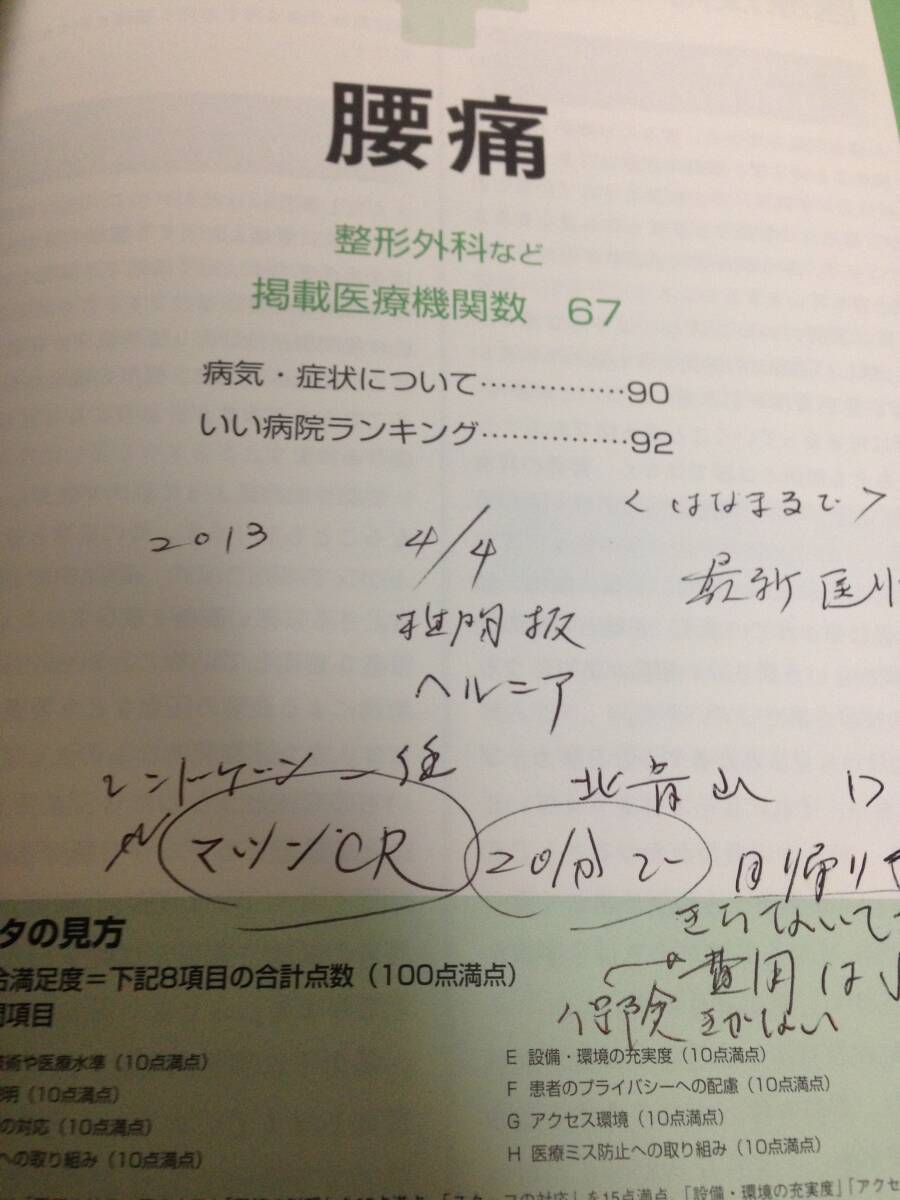 腰痛
整形外科など
掲載医療機関数 67
病気・症状について……………90
いい病院ランキング……………92
<はなまるで>
2013 4/4
最新医
椎間板
ヘルニア
レントゲン 一任
北青山
マッシバCR 20分で 日帰り
きらないで
費用は
保険 きかない
タの見方
合満足度=下記8項目の合計点数(100点満点)
項目
技術や医療水準(10点満点)
明(10点満点)
の対応(10点満点)
への取り組み(10点満点)
E 設備・環境の充実度(10点満点)
F 患者のプライバシーへの配慮(10点満点)
G アクセス環境(10点満点)
H 医療ミス防止への取り組み(10点満点)
の対応」を15点満点、「設備・環境の充実度」「アクセ